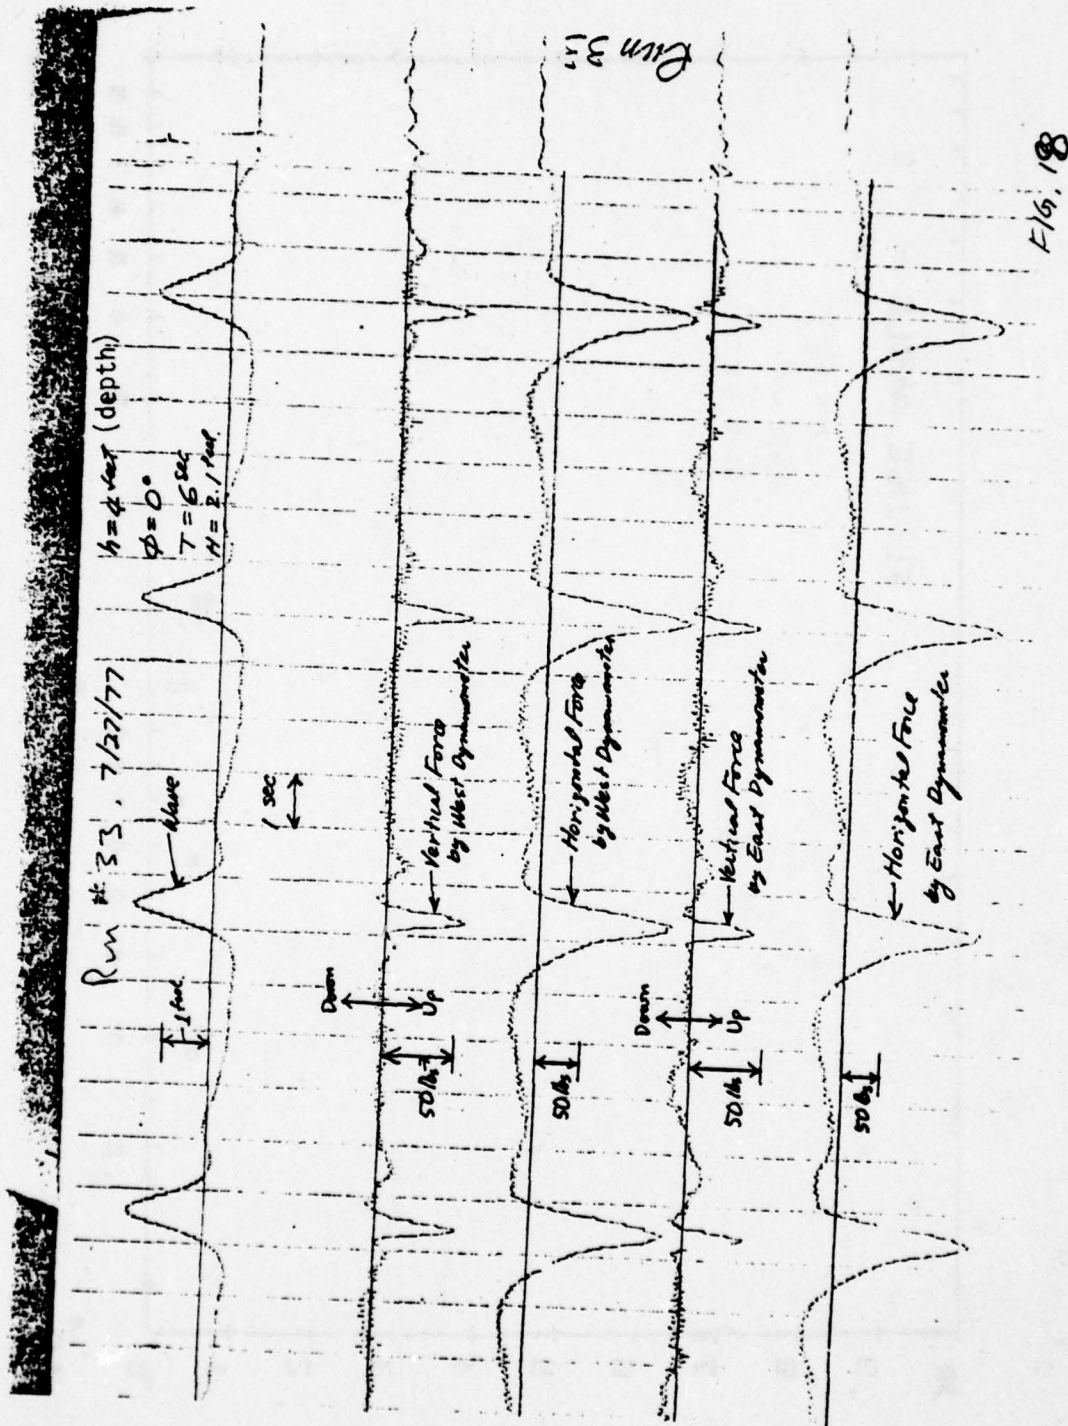 Run #33, 7/27/77
h=4 feet (depth)
φ=0°
T=6 sec
H=2.1 feet
Wave
1 foot
1 sec
Down
Up
50 lbs
Vertical Force
by West Dynamometer
50 lbs
Horizontal Force
by West Dynamometer
Down
Up
50 lbs
Vertical Force
by East Dynamometer
50 lbs
Horizontal Force
by East Dynamometer
Run 33
FIG. 18